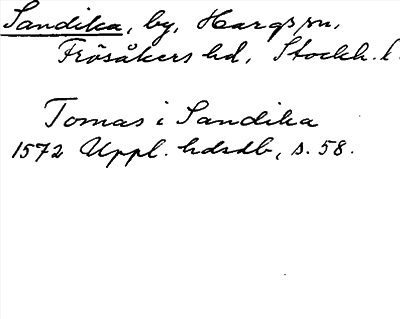 Sandika, by, Hargs sn,
Frösåkers hd, Stockh. l.
Tomas i Sandika
1572 Uppl. hdrdb, s. 58.